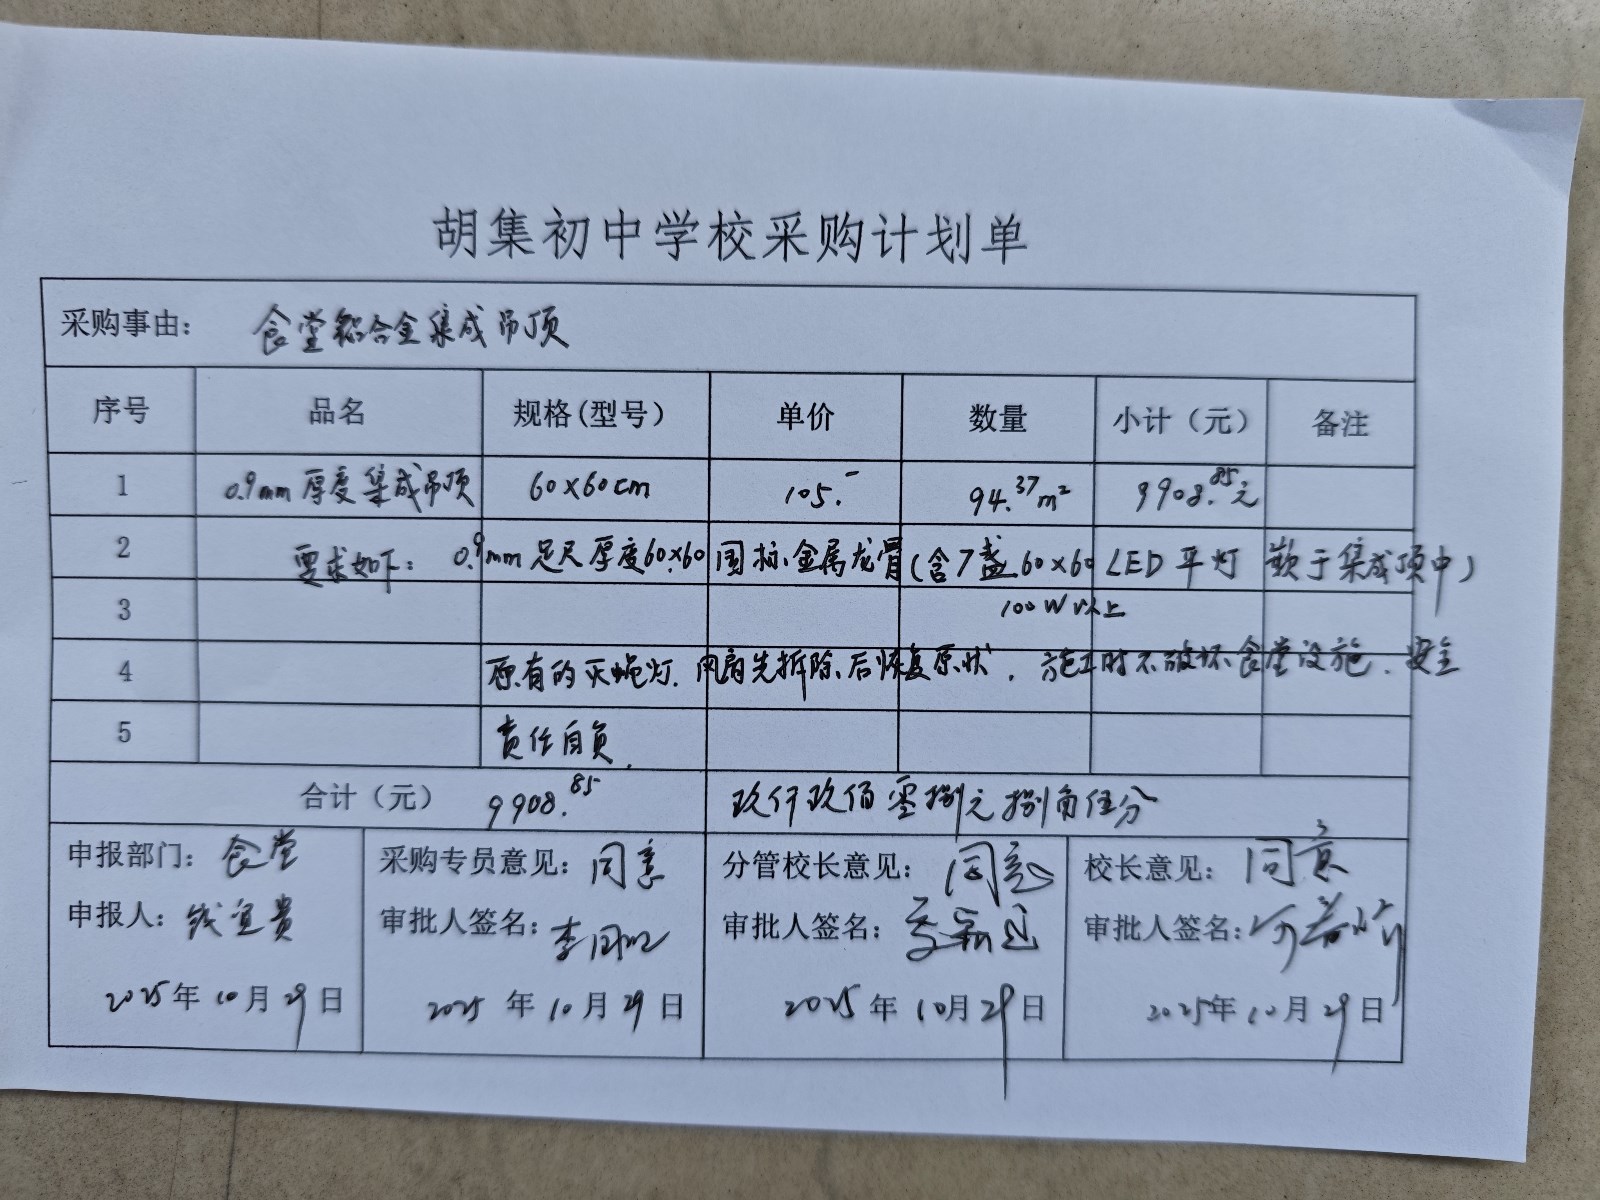 胡集初中学校采购计划单
采购事由： 食堂铝合金集成吊顶
序号 品名 规格(型号) 单价 数量 小计（元） 备注
1 0.9mm厚度集成吊顶 60×60cm 105.- 94.37m² 9908.85元
2 要求如下：0.9mm足尺厚度60×60国标金属龙骨(含7盏60×60 LED平灯 嵌于集成顶中)
3 100W以上
4 原有的灭蝇灯.风扇先拆除后恢复原状，施工时不破坏食堂设施、安全
5 责任自负.
合计（元） 9908.85 玖仟玖佰零捌元捌角伍分
申报部门：食堂 采购专员意见：同意 分管校长意见：同意 校长意见：同意
申报人：钱宜贵 审批人签名： 审批人签名： 审批人签名：
2025年10月29日 2025年10月29日 2025年10月29日 2025年10月29日